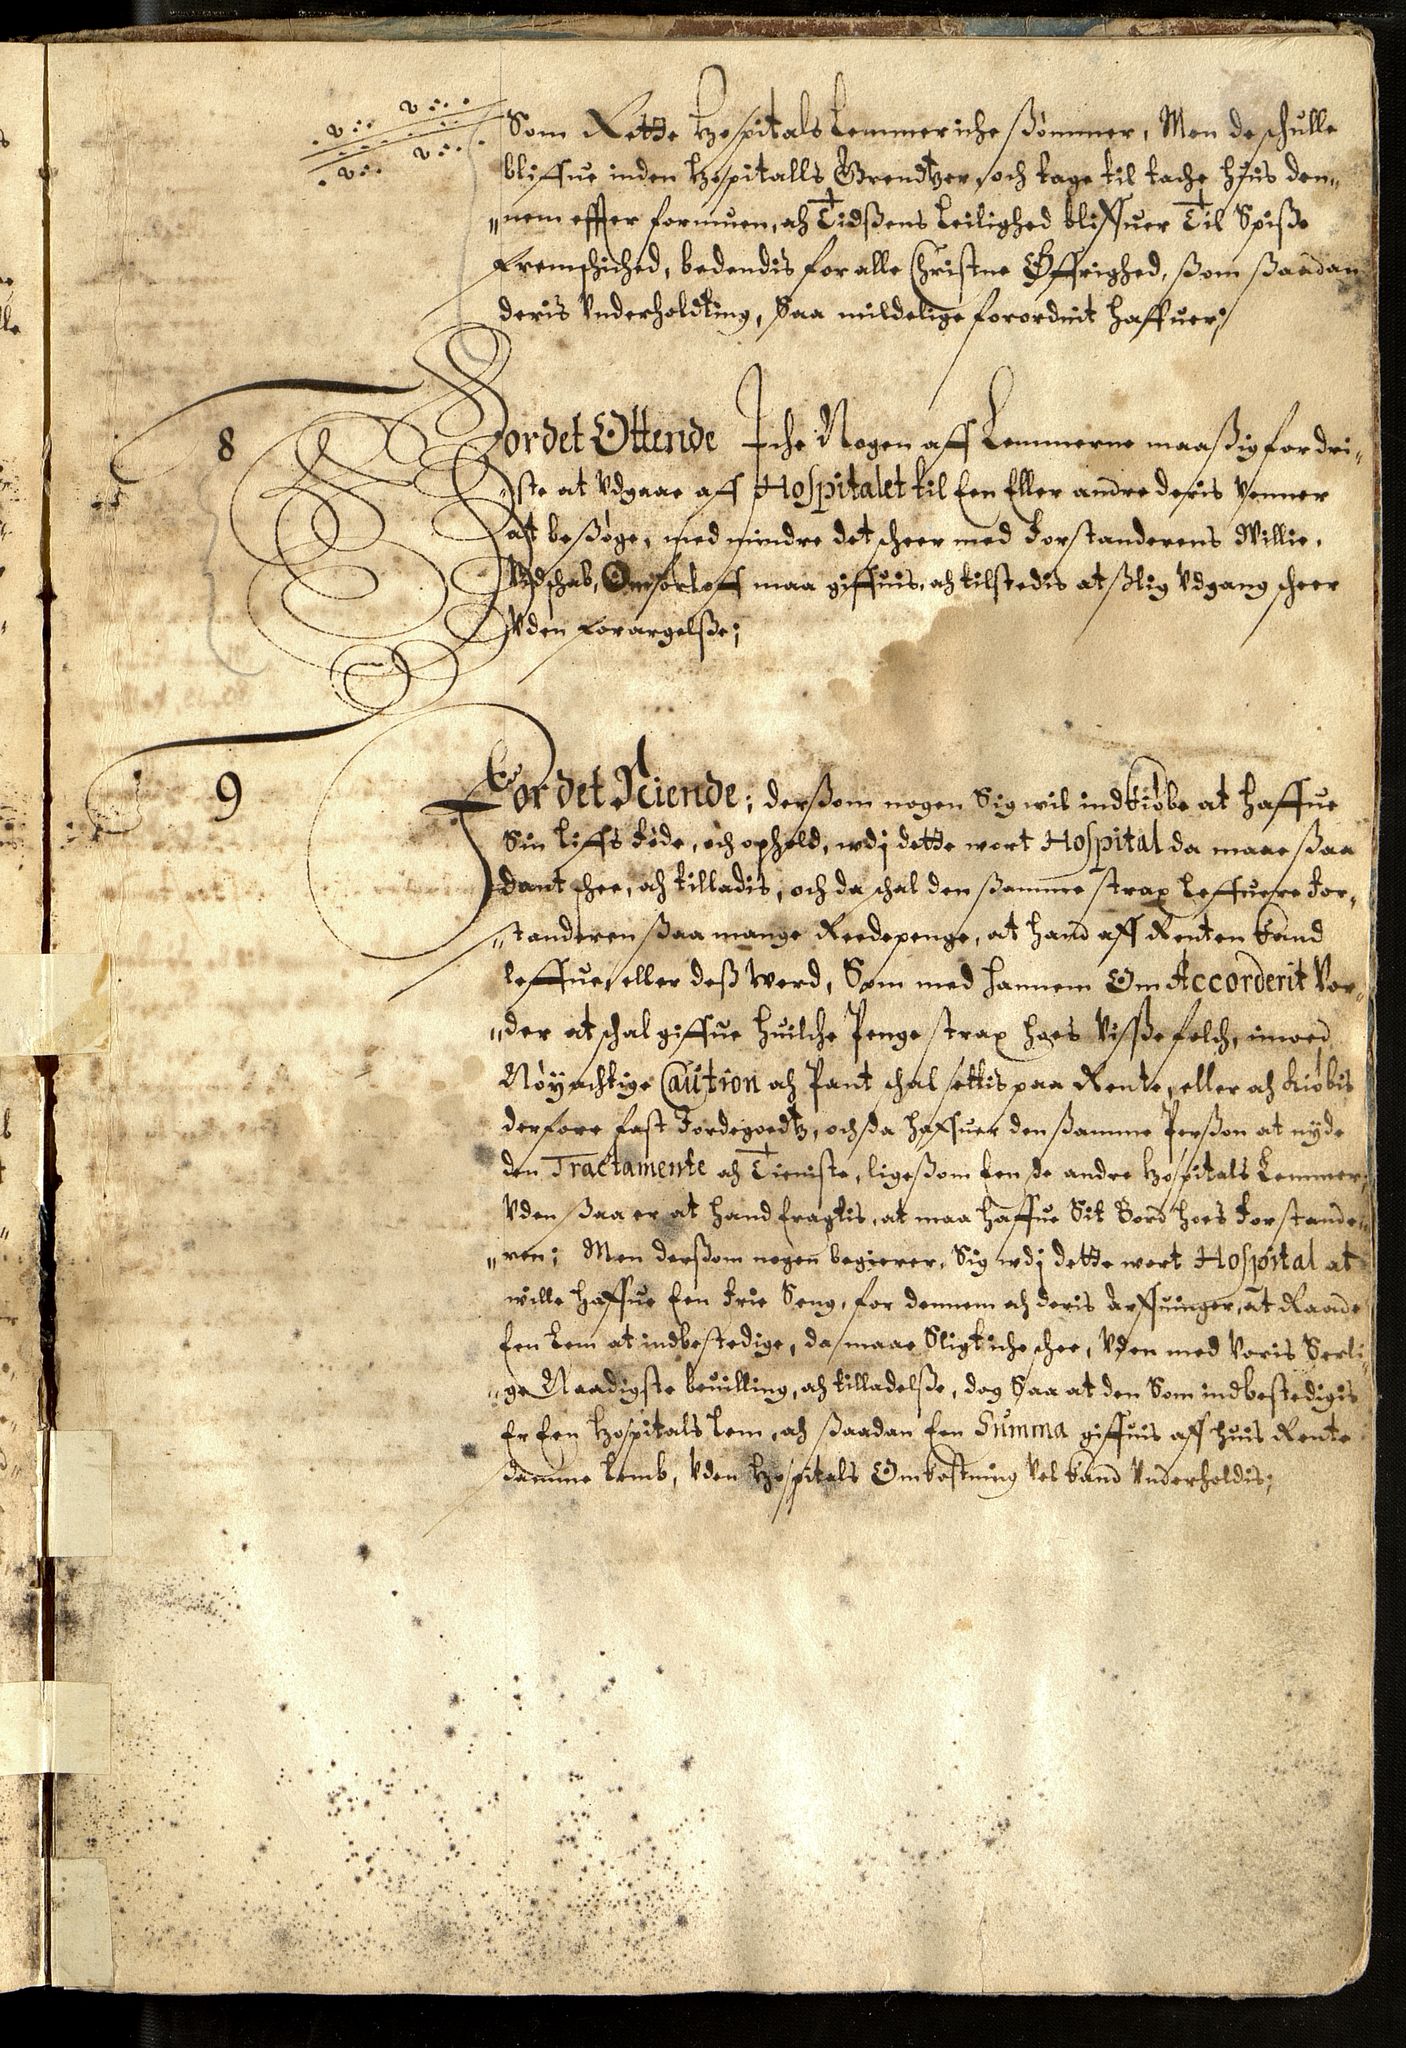 Som Rette Hospitals Lemmer iche sømmer, Men de schulle
bliffue inden Hospitalls Grendtzer, och tage til tache huis den-
nem effter formuen, och Tidßens Leilighed bliffuer Til Spiße
fremschiched, bedendis for alle Christne Øffrighed, ßom ßaadan
deris Vnderholdting, Saa mildelige forordnit haffuer;
8 For det Ottende Iche Nogen aff Lemmerne maa ßig fordri-
ste at Vdgaae aff Hospitalet til Een Eller andre deris Venner
at besøge, med mindre det scheer med Forstanderens Willie,
Vidschab, Orloff maa giffuis, och tilstedis at ßlig Vdgang scheer
Vden forargelße;
9 For det Niende; derßom nogen Sig wil indkiøbe at haffue
Sin liffs føde, och ophold, wdj dette wort Hospital da maae ßaa
dant schee, och tilladis, och da schal den ßamme strax leffuere For-
standeren ßaa mange Reedepenge, at hand aff Renten kand
leffue, eller deß Werd, Som med hannem Om Accorderit Vor-
der at schal giffue huilche Penge strax hoes Viße folch, imoed
Nøyachtige Caution och Pant schal settis paa Rente, eller och kiøbis
derfore fast Jordegoedtz, och da haffuer den ßamme Perßon at nyde
den Tractamente och Tieniste, ligeßom Een de andre Hospitals Lemmer;
Vden ßaa er at hand fragtis, at maa haffue Sit Bord hoes Forstande-
ren; Men derßom nogen begierer, Sig wdj dette wort Hospital at
wille haffue Een Frie Seng, for dennem och deris Arffuinger, at Raade
Een Lem at indbestedige, da maae Sligt iche schee, Vden med Voris Serli-
ge Naadigste beuilling, och tilladelße, dog Saa at den Som indbestedigis
Er Een Hospitals Lem, och ßaadan Een Summa giffuis aff huis Rente
samme Lemb, Vden Hospitals Omkostning Vel kand Vnderholdis;